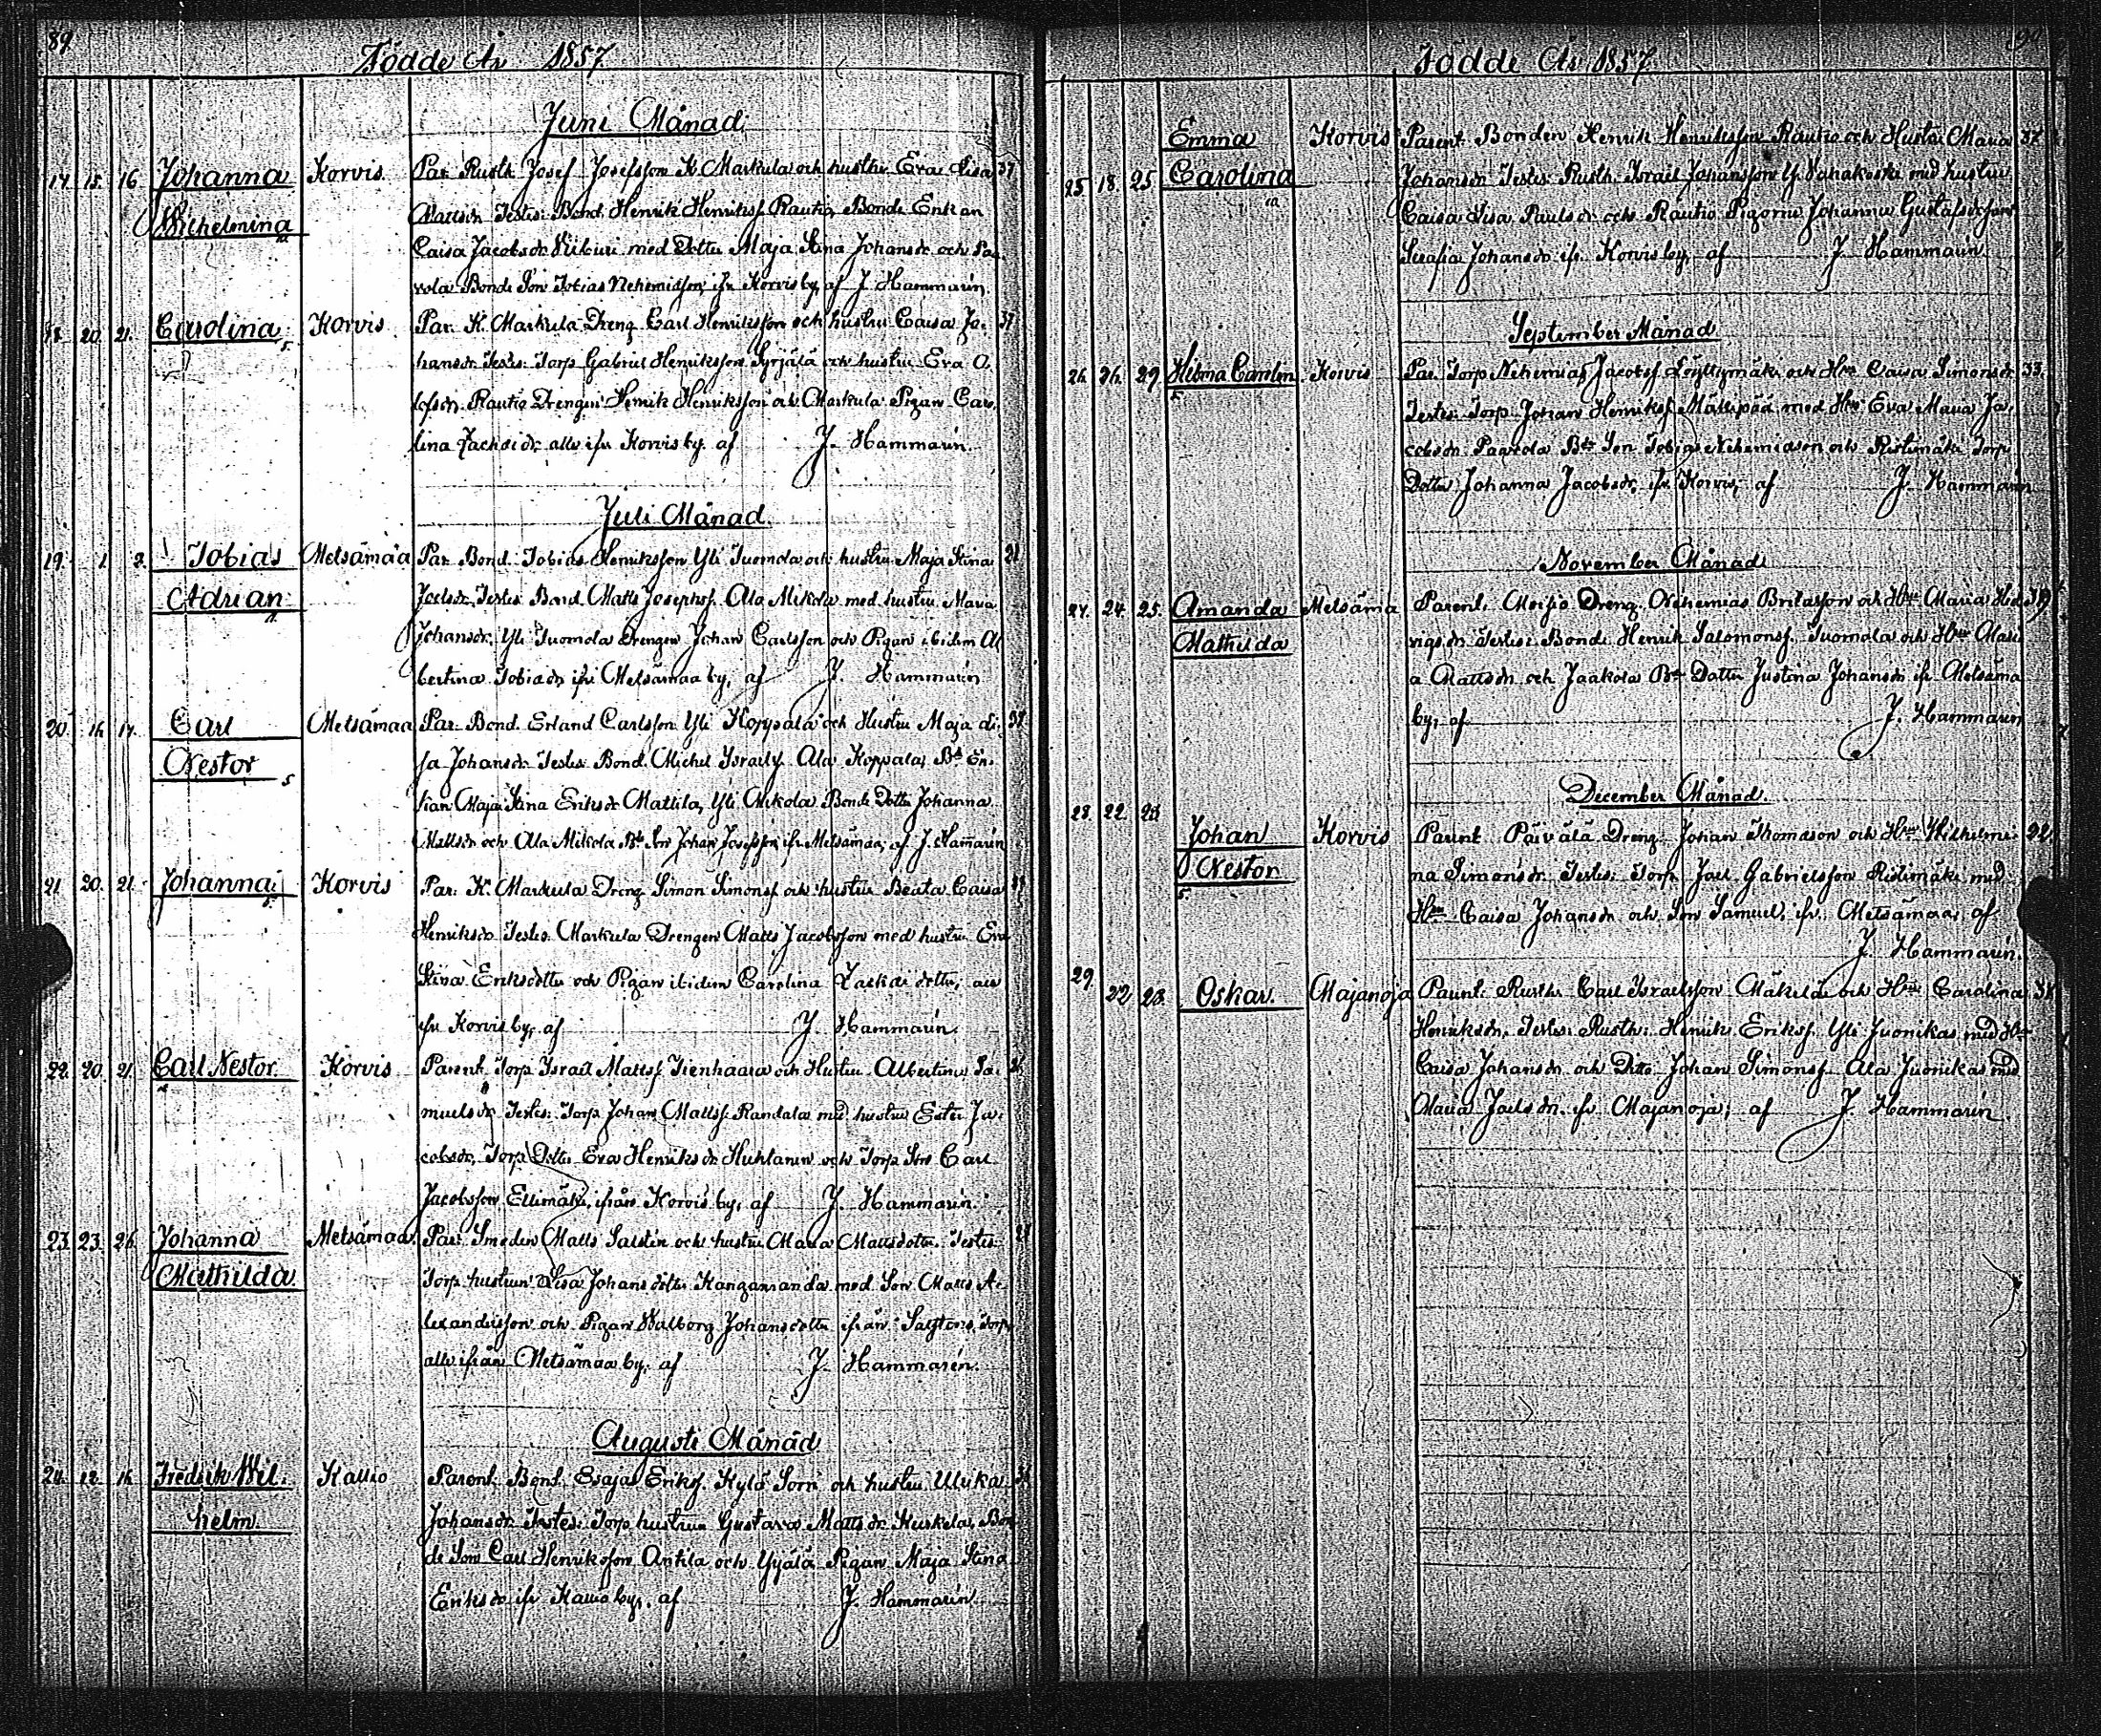 89
Födde År 1857
Juni Månad
17. 15. 16. Johanna Korvis Par. Rusth. Josef Josefsson K. Markula och hustru Eva Lisa 37
Wilhelmina Mattsdr Testes: Bond. Henrik Henrikss. Rautio, Bonde Enkan
Caisa Jacobsdr Viikuri med Dotter Maja Stina Johansdr och Paa
vola Bonde Son Tobias Nehemiasson ifr Korvis by, af J. Hammarén
18. 20. 21. Carolina Korvis Par. K. Markula Dreng Carl Henriksson och hustru Caisa Jo- 37
hansdr Testes: Torp. Gabriel Henriksson Syrjälä och hustru Eva O-
lofsdr. Rautio Drengen Henrik Henriksson och Markula Pigan Caro
lina Zachei dr. alle ifr Korvis by. af J. Hammarén.
Juli Månad
19. 1. 2. Tobias Metsämaa Par. Bond. Tobias Henriksson Yli Tuomola och hustru Maja Stina 21
Adrian Joelsdr, Testes Bond. Matts Josephs. Ala Mikola med hustru Maria
Johansdr. Yli Tuomola Drengen Johan Carlsson och Pigan ibidem Al
bertina Tobiædr ifr Metsämaa by, af J. Hammarén
20. 16. 17. Carl Metsämaa Par. Bond. Erland Carlsson Yli Koppala och Hustru Maja Li- 38
Nestor sa Johansdr. Testes Bond. Michel Israels. Ala Koppala, Bd En-
kan Maja Stina Eriksdr Mattila, Yli Mikola Bonde Dotter Johanna
Mattsdr och Ala Mikola Bde Son Johan Josefsson ifr Metsämaa, af J. Hammarén
21. 20. 21. Johanna Korvis Par. K. Markula Dreng Simon Simons. och hustru Beata Caisa
Henriksdr Testes. Markula Drengen Matts Jacobsson med hustru Eva
Stina Eriksdotter och Pigan ibidem Carolina Zachei dotter, alle
ifr Korvis by, af J. Hammarén.
22. 20. 21. Carl Nestor Korvis Parent. Torp. Israel Mattss. Tienhaara och Hustru Albertina Sa-
muelsdr Testes: Torp. Johan Mattss. Randala med hustru Ester Ja-
cobsdr, Torp. Dotter Eva Henriksdr Huhtanen och Torp. Son Carl
Jacobsson Ellimäki, ifrån Korvis by, af J. Hammarén.
23. 23. 26. Johanna Metsämaa Par. Smeden Matts Salstén och hustru Maria Mattsdotter. Testes
Mathilda Torp. hustrun Lisa Johansdotter Kangasranda med Son Matts A-
lexandersson och Pigan Walborg Johansdotter ifrån Torp,
alle ifrån Metsämaa by, af J. Hammarén.
Augusti Månad
24. 12. 16. Fredrik Wil- Kauio Parent. Bond. Esajas Eriks. Kylä Sorri och hustru Ulrika
helm. Johansdr. Testes: Torp hustrun Gustava Mattsdr Huskela, Bon
de Son Carl Henriksson Antila och Pigan Maja Stina
Eriksdr ifr Kauio by, af J. Hammarén.
90
Födde År 1857
25. 18. 25. Emma Korvis Parent. Bonden Henrik Henriksson Rautio och Hustru Maria 37
Carolina Johansdr Testes. Rusth. Israel Johansson Y. Vahakoski med hustru
Caisa Lisa Paulsdr och Rautio Pigorne Johanna Gustafsdr
Serafia Johansdr ifr. Korvis by, af J. Hammarén.
September Månad
26. 26. 29. Hilma Carolin. Korvis Par. Torp. Nehemias Jacobs. Löyttymäki och Hru Caisa Simonsdr 33.
Testes. Torp. Johan Henriks. Mäkipää med Hru Eva Maria Ja-
cobsdr. Paavola Bde Son Tobias Nehemiasson och Ristimäki Torp.
Dotter Johanna Jacobsdr, ifr Korvis, af J. Hammarén
November Månad
27. 24. 25. Amanda Metsäma Parent. Moisio Dreng. Nehemias Britasson och Hru Maria Hed 39
Mathilda vigsdr. Testes: Bonde Henrik Salomons. Tuomola och Hru Mari
a Mattsdr och Jaakola Bde Dotter Justina Johansdr ifr Metsäma
by, af J. Hammarén
December Månad.
28. 22. 23. Johan Korvis Parent Päivälä Dreng Johan Thomasson och Hru Wilhelmi- 22.
Nestor na Simonsdr. Testes: Torp. Joel Gabrielsson Ristimäki med
Hru Caisa Johansdr och Son Samuel, ifr. Metsämaa, af
J. Hammarén.
29. 22. 23. Oskar. Majanoja Parent. Rusth. Carl Israelsson Mäkilä och Hru Carolina 38
Henriksdr. Testes: Rusth: Henrik Eriks. Yli Juonikas med Hru
Caisa Johansdr och Ditto Johan Simons. Ala Juonikas med
Maria Joelsdr. ifr Majanoja; af J. Hammarén